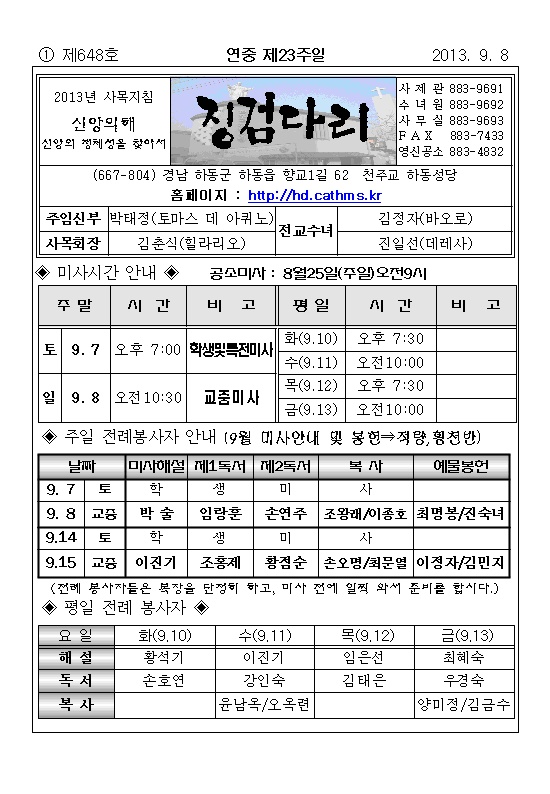 ① 제648호 연중 제23주일 2013. 9. 8
2013년 사목지침
신앙의해
신앙의 정체성을 찾아서
징검다리
사 제 관 883-9691
수 녀 원 883-9692
사 무 실 883-9693
F A X 883-7433
영신공소 883-4832
(667-804) 경남 하동군 하동읍 향교1길 62 천주교 하동성당
홈페이지 : http://hd.cathms.kr
주임신부 박태정(토마스 데 아퀴노) 전교수녀 김정자(바오로)
사목회장 김춘식(힐라리오) 진일선(데레사)
◈ 미사시간 안내 ◈ 공소미사 : 8월25일(주일)오전9시
주 말 시 간 비 고 평 일 시 간 비 고
토 9. 7 오후 7:00 학생및특전미사 화(9.10) 오후 7:30
수(9.11) 오전10:00
일 9. 8 오전10:30 교중미사 목(9.12) 오후 7:30
금(9.13) 오전10:00
◈ 주일 전례봉사자 안내 (9월 미사안내 및 봉헌⇒적량,횡천반)
날짜 미사해설 제1독서 제2독서 복 사 예물봉헌
9. 7 토 학 생 미 사
9. 8 교중 박 술 임랑훈 손연주 조왕래/이종호 최명봉/진숙녀
9.14 토 학 생 미 사
9.15 교중 이진기 조홍제 황점순 손오명/최문열 이정자/김민지
(전례 봉사자들은 복장을 단정히 하고, 미사 전에 일찍 와서 준비를 합시다.)
◈ 평일 전례 봉사자 ◈
요 일 화(9.10) 수(9.11) 목(9.12) 금(9.13)
해 설 황석기 이진기 임은선 최혜숙
독 서 손호연 강인숙 김태은 우경숙
복 사 윤남옥/오옥련 양미정/김금수